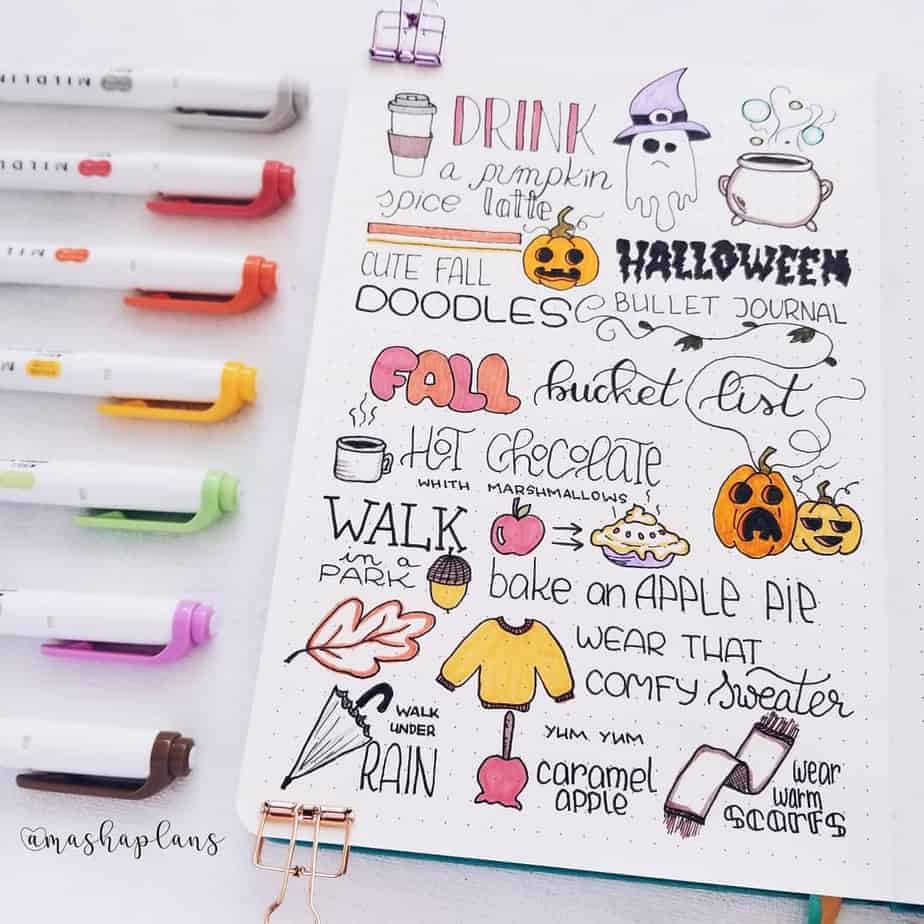 DRINK
a pumpkin
spice latte
CUTE FALL
DOODLES
HALLOWEEN
BULLET JOURNAL
FALL bucket list
HOT chocolate
WHITH MARSHMALLOWS
WALK
in a
PARK
bake an APPLE PIE
WEAR THAT
COMFY sweater
WALK
UNDER
RAIN
YUM YUM
caramel
apple
wear
warm
scarfs
MILDLIN
MILDL
MIL
M
@mashaplans